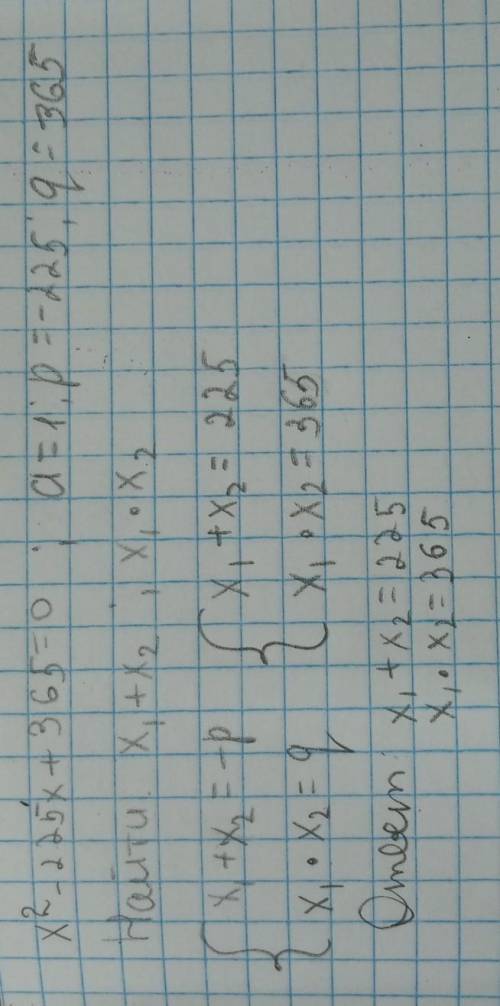 x² - 225x + 365 = 0 ; a = 1; p = -225; q = 365
Найти x₁ + x₂ ; x₁ • x₂
{ x₁ + x₂ = -p { x₁ + x₂ = 225
{ x₁ • x₂ = q { x₁ • x₂ = 365
Ответ: x₁ + x₂ = 225
x₁ • x₂ = 365